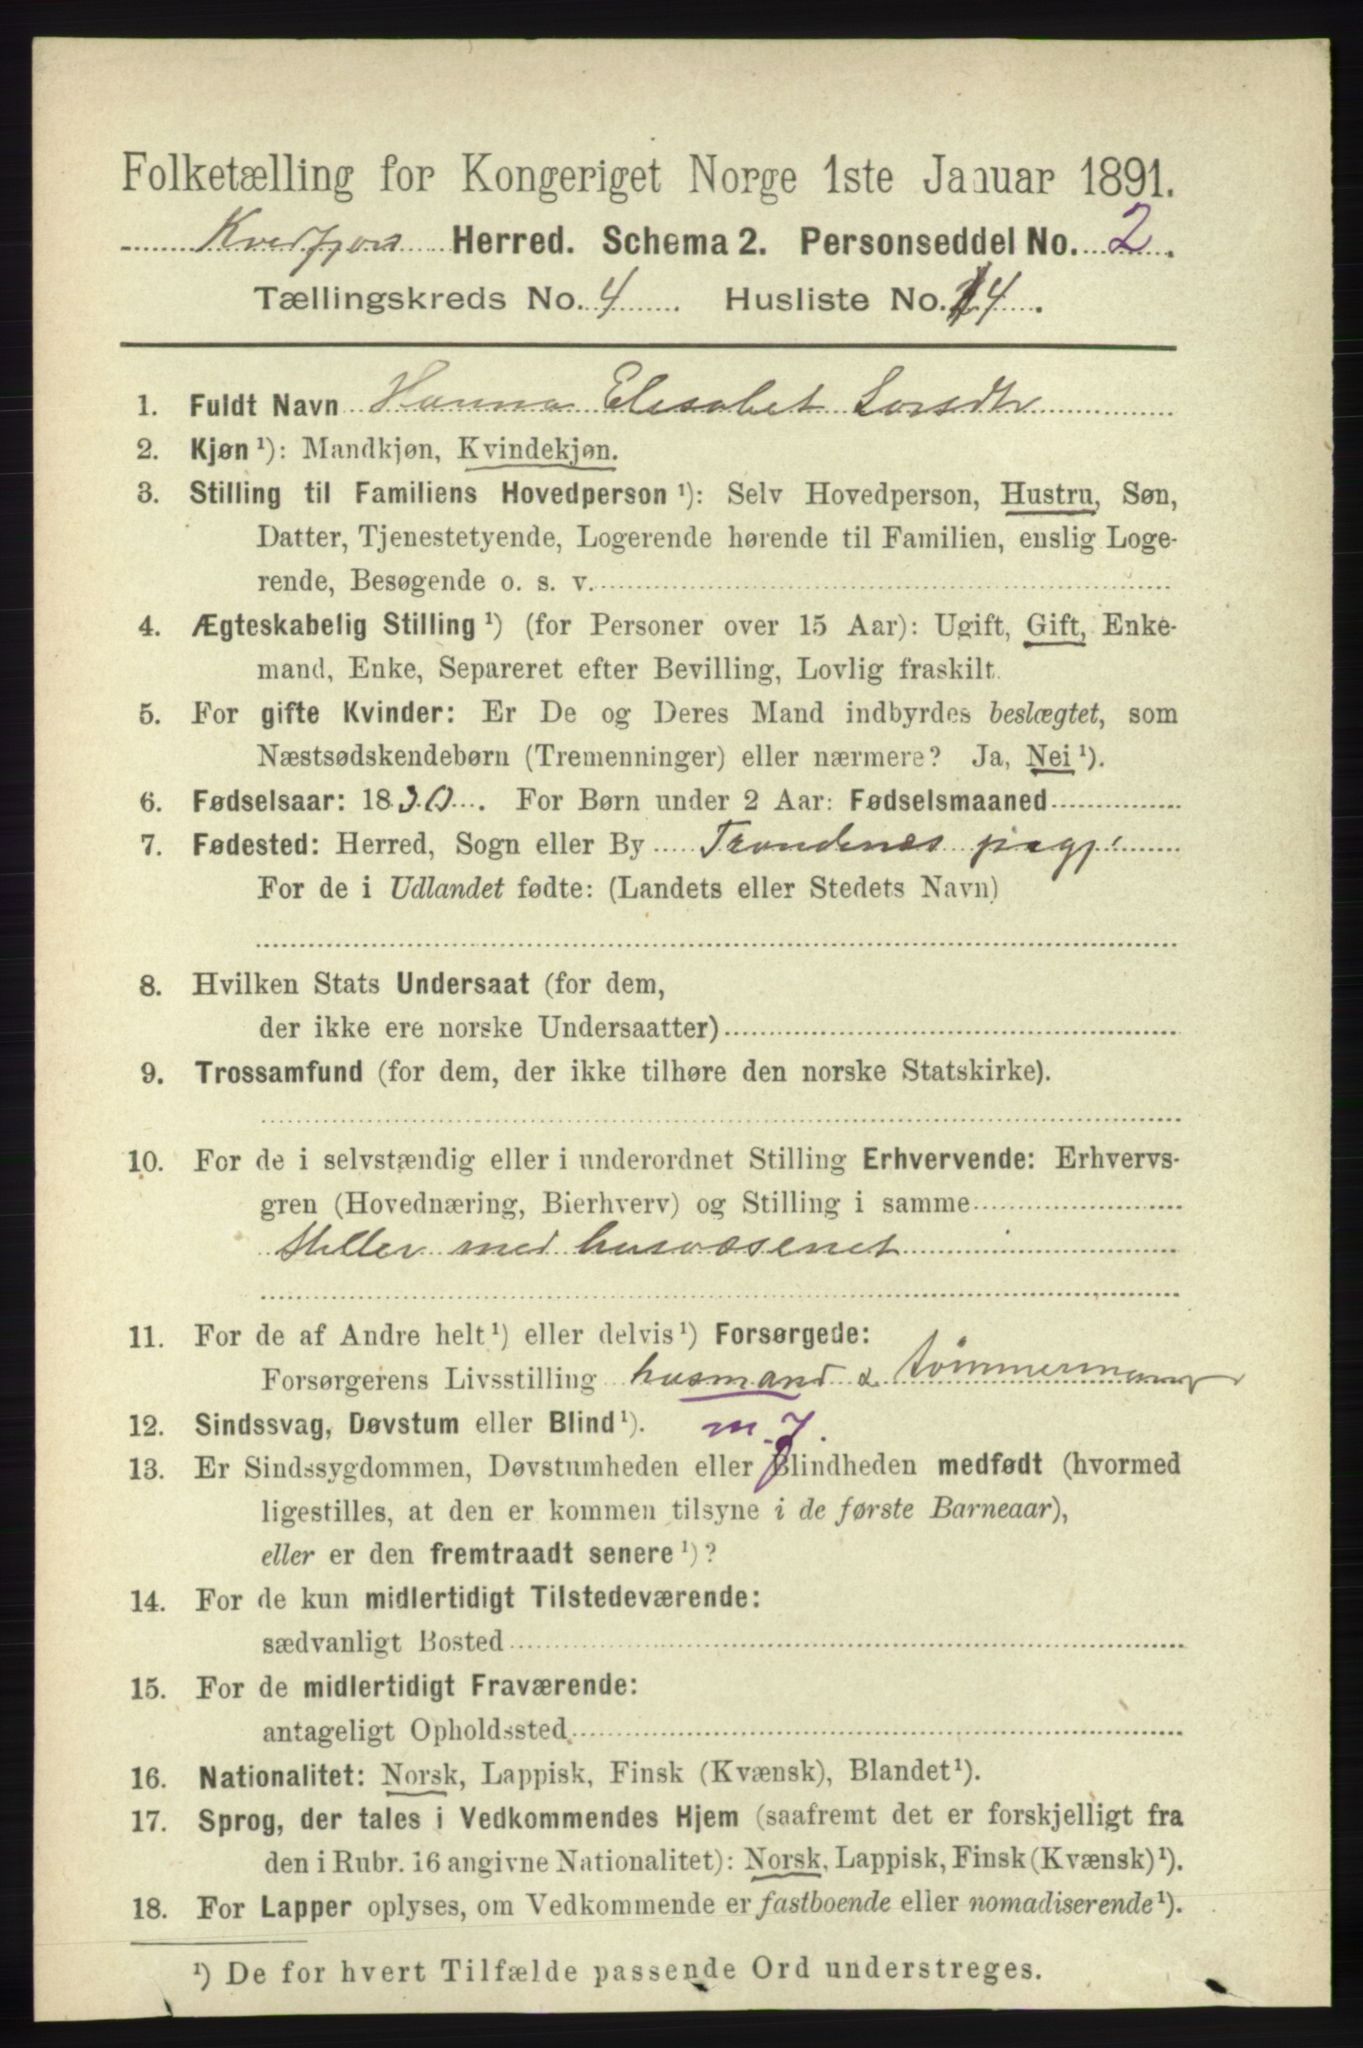 Folketælling for Kongeriget Norge 1ste Januar 1891.
Kvedfjors Herred. Schema 2. Personseddel No. 2.
Tællingskreds No. 4 Husliste No. 14.
1. Fuldt Navn Hanna Elisabet Larsdtr
2. Kjøn ¹): Mandkjøn, Kvindekjøn.
3. Stilling til Familiens Hovedperson ¹): Selv Hovedperson, Hustru, Søn,
Datter, Tjenestetyende, Logerende hørende til Familien, enslig Loge-
rende, Besøgende o. s. v.
4. Ægteskabelig Stilling ¹) (for Personer over 15 Aar): Ugift, Gift, Enke-
mand, Enke, Separeret efter Bevilling, Lovlig fraskilt.
5. For gifte Kvinder: Er De og Deres Mand indbyrdes beslægtet, som
Næstsødskendebørn (Tremenninger) eller nærmere? Ja, Nei ¹).
6. Fødselsaar: 1830. For Børn under 2 Aar: Fødselsmaaned
7. Fødested: Herred, Sogn eller By Trondenes
For de i Udlandet fødte: (Landets eller Stedets Navn)
8. Hvilken Stats Undersaat (for dem,
der ikke ere norske Undersaatter)
9. Trossamfund (for dem, der ikke tilhøre den norske Statskirke).
10. For de i selvstændig eller i underordnet Stilling Erhvervende: Erhvervs-
gren (Hovednæring, Bierhverv) og Stilling i samme
steller med husvæsenet
11. For de af Andre helt ¹) eller delvis ¹) Forsørgede:
Forsørgerens Livsstilling husmand & tømmermand
12. Sindssvag, Døvstum eller Blind ¹). m. J.
13. Er Sindssygdommen, Døvstumheden eller Blindheden medfødt (hvormed
ligestilles, at den er kommen tilsyne i de første Barneaar),
eller er den fremtraadt senere ¹)?
14. For de kun midlertidigt Tilstedeværende:
sædvanligt Bosted
15. For de midlertidigt Fraværende:
antageligt Opholdssted
16. Nationalitet: Norsk, Lappisk, Finsk (Kvænsk), Blandet ¹).
17. Sprog, der tales i Vedkommendes Hjem (saafremt det er forskjelligt fra
den i Rubr. 16 angivne Nationalitet): Norsk, Lappisk, Finsk (Kvænsk) ¹).
18. For Lapper oplyses, om Vedkommende er fastboende eller nomadiserende ¹).
¹) De for hvert Tilfælde passende Ord understreges.